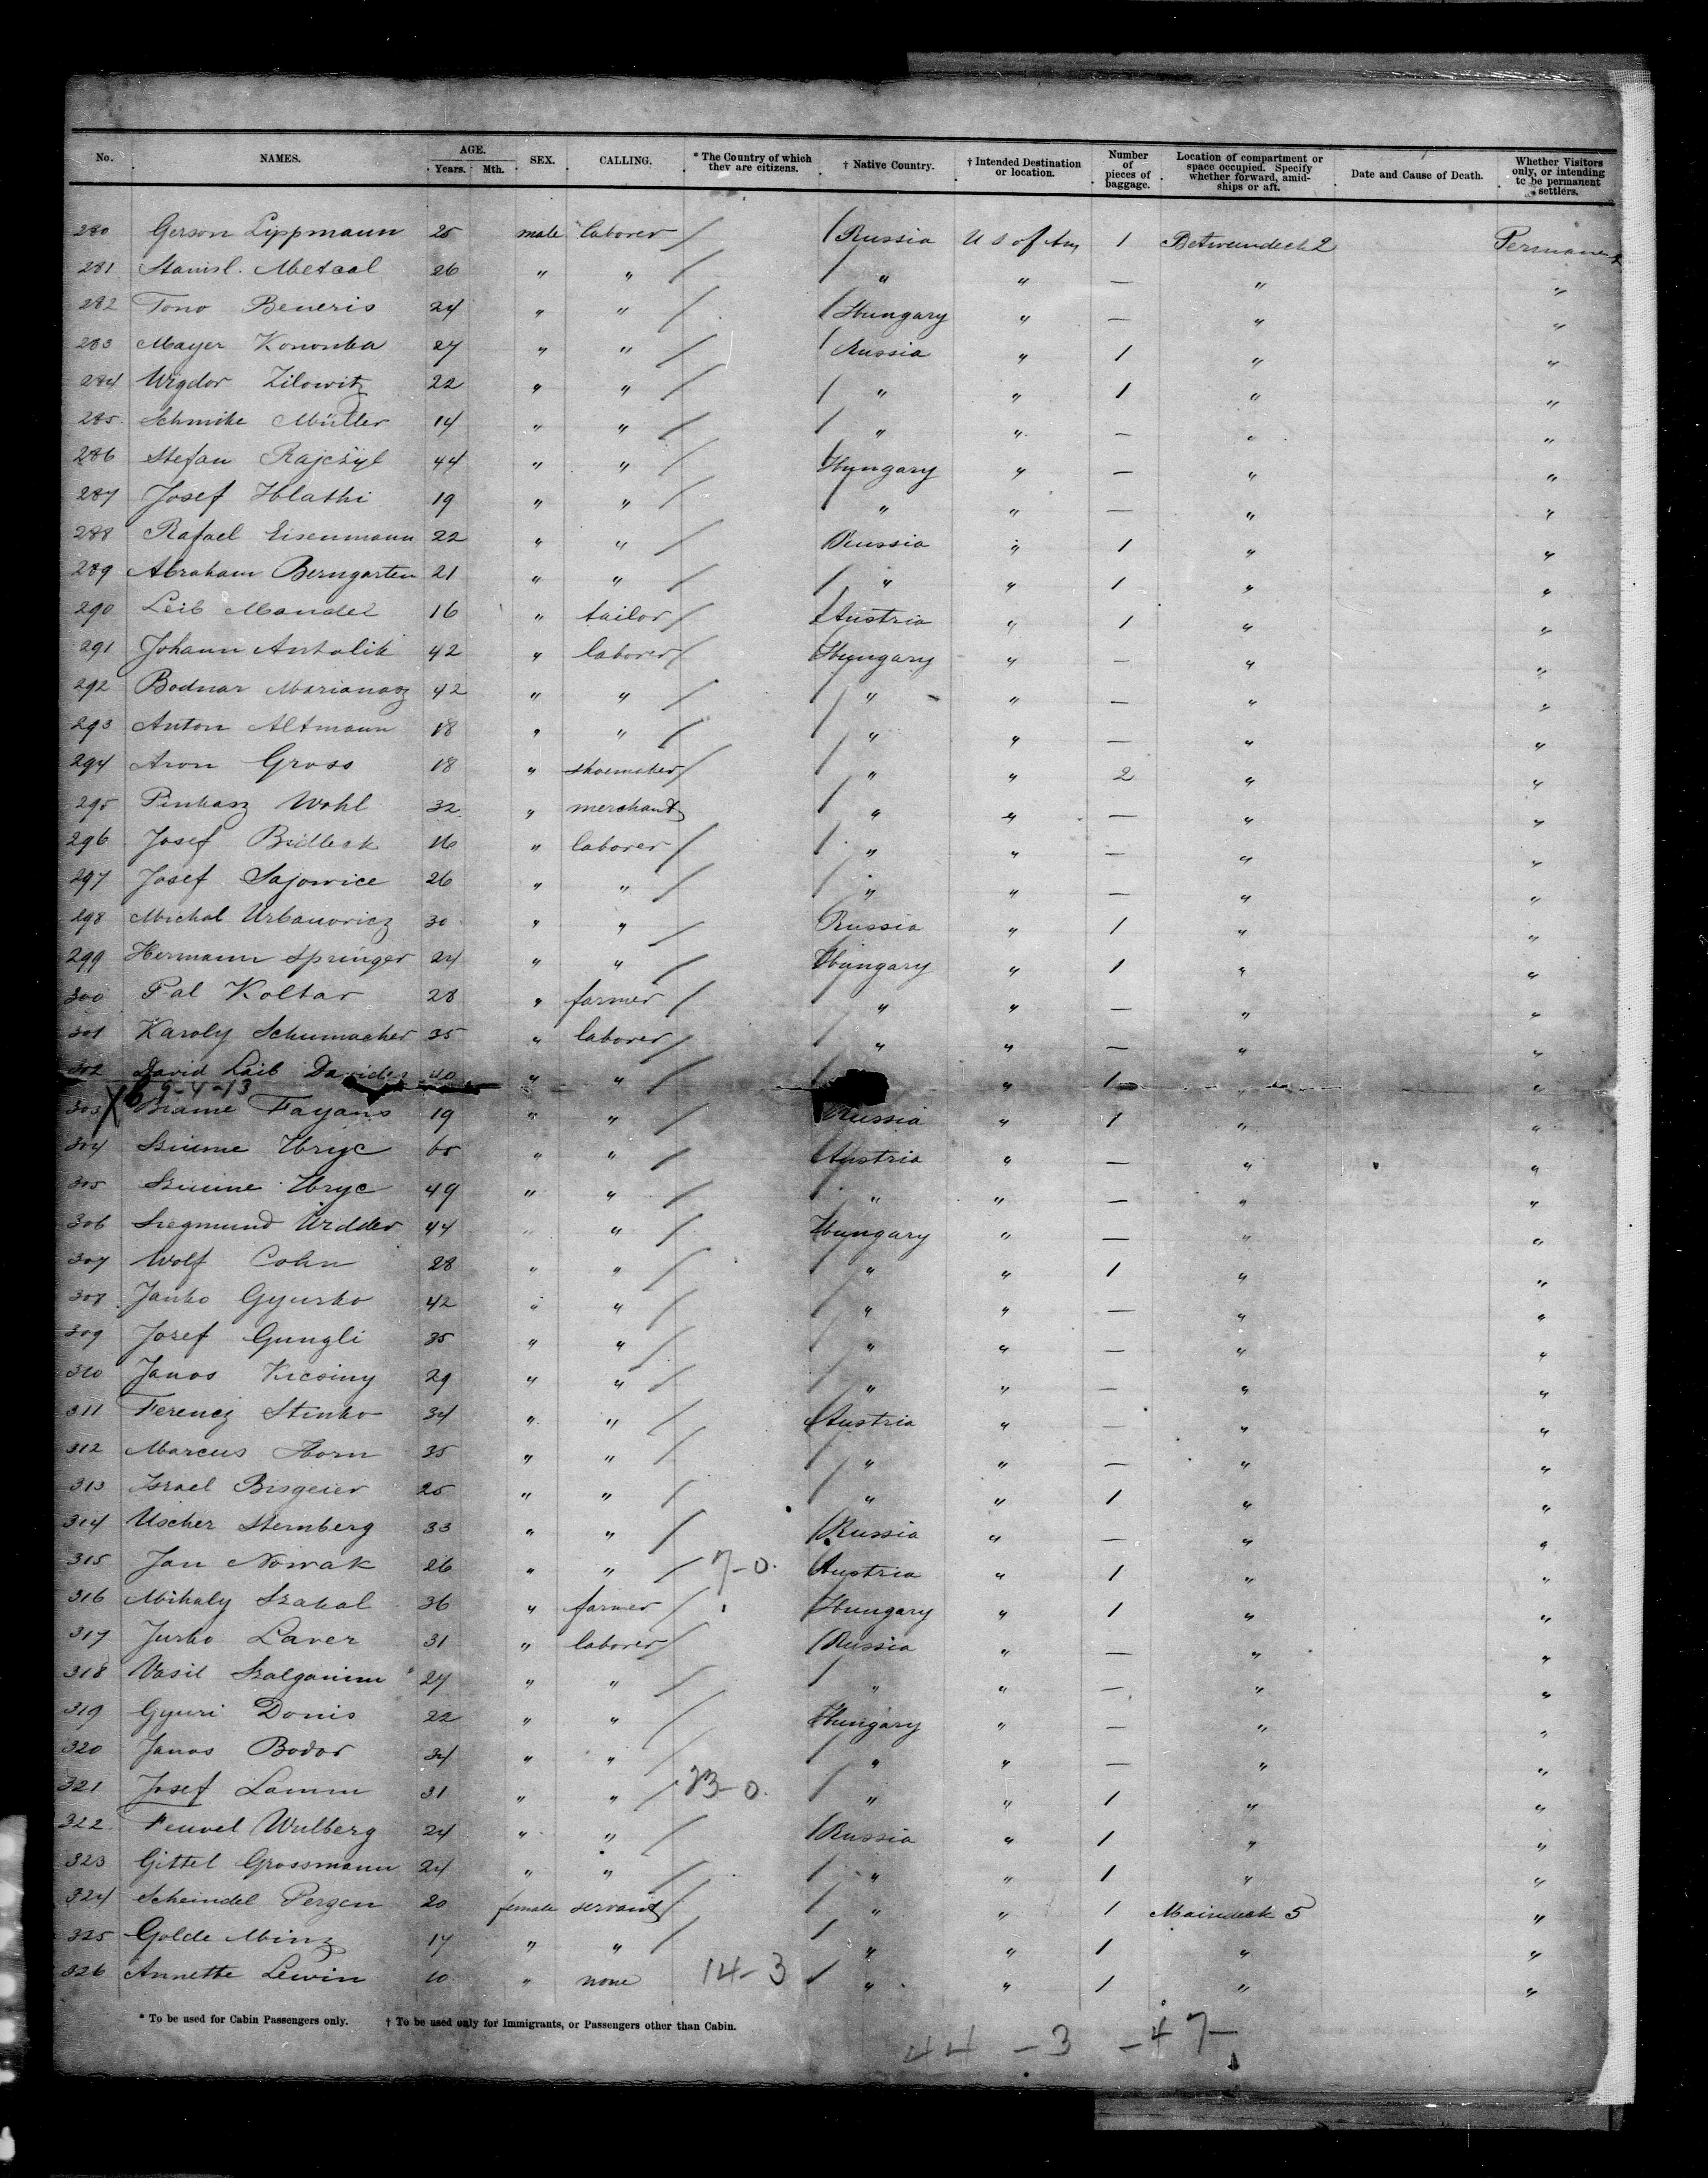 No. NAMES. AGE. Years. Mth. SEX. CALLING. * The Country of which they are citizens. † Native Country. † Intended Destination or location. Number of pieces of baggage. Location of compartment or space occupied. Specify whether forward, amidships or aft. Date and Cause of Death. Whether Visitors only, or intending to be permanent settlers.
280 Gerson Lippmann 25 male laborer / / Russia U S of Am 1 Betweendeck 2 Permanent
281 Stanisl. 26 " " / / " " — " "
282 Tono Beneris 24 " " / / Hungary " — " "
283 Mayer Kononka 27 " " / / Russia " 1 " "
284 Wigdor Zilowitz 22 " " / / " " 1 " "
285 Schmike Müller 14 " " / / " " — " "
286 Stefan 44 " " / Hungary " — " "
287 Josef Hlathi 19 " " / / " " — " "
288 Rafael Eisenmann 22 " " / Russia " 1 " "
289 Abraham Berngarten 21 " " / / " " 1 " "
290 Leib Mandel 16 " tailor / / Austria " 1 " "
291 Johann Antolik 42 " laborer / Hungary " — " "
292 Bodnar Marianasz 42 " " / / " " — " "
293 Anton Altmann 18 " " / / " " — " "
294 Aron Gross 18 " shoemaker / / " " 2 " "
295 Pinkasz Wohl 32 " merchant / " " — " "
296 Josef 16 " laborer / / " " — " "
297 Josef Sajowice 26 " " / / " " — " "
298 Michal Urbanovicz 30 " " / Russia " 1 " "
299 Hermann Springer 24 " " / Hungary " 1 " "
300 Pal Koltar 28 " farmer / / " " — " "
301 Karoly Schumacher 35 " laborer / / " " — " "
302 David Laib 40 " " / / " 1 " "
X 9-4-13
303 Fayans 19 " " / Russia " 1 " "
304 Hryc 60 " " / Austria " — " "
305 Hryc 49 " " / / " " — " "
306 Siegmund 44 " " / Hungary " — " "
307 Wolf Cohn 28 " " / / " " 1 " "
308 Janko Gyurko 42 " " / / " " — " "
309 Josef Gungli 35 " " / / " " — " "
310 Janos 29 " " / / " " — " "
311 Ferencz Stinko 34 " " / Austria " — " "
312 Marcus Horn 35 " " / / " " — " "
313 Israel Bisgeier 25 " " / / " " 1 " "
314 Uscher Sternberg 33 " " / / Russia " — " "
315 Jan Nowak 26 " " / 7-0. / Austria " 1 " "
316 Mihaly Szakal 36 " farmer / Hungary " 1 " "
317 Jurko Laver 31 " laborer / / Russia " — " "
318 Vasil 27 " " / / " " — " "
319 Gyuri Donis 22 " " / Hungary " — " "
320 Janos Bodor 34 " " / / " " — " "
321 Josef Lamm 31 " " / 23-0. / " " 1 " "
322 Feuvel Wulberg 24 " " / / Russia " 1 " "
323 Gittel Grossmann 24 " " / / " " 1 " "
324 Scheindel Pergen 20 female servant / / " " 1 Maindeck 5 "
325 Golde Minz 17 " " / / " " 1 " "
326 Annette Lewin 10 " none 14-3 / " " 1 " "
* To be used for Cabin Passengers only. † To be used only for Immigrants, or Passengers other than Cabin.
44 - 3 - 47